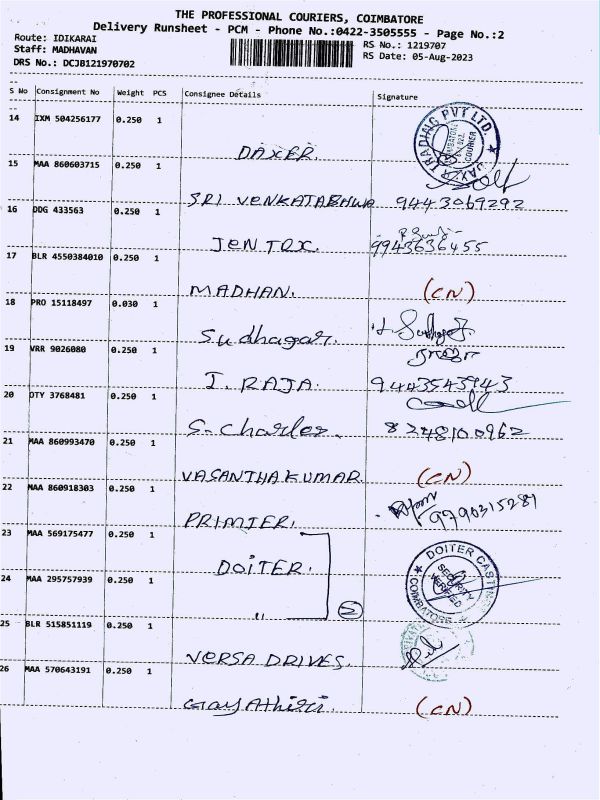 THE PROFESSIONAL COURIERS, COIMBATORE
Delivery Runsheet - PCM - Phone No.:0422-3505555 - Page No.:2
Route: IDIKARAI RS No.: 1219707
Staff: MADHAVAN RS Date: 05-Aug-2023
DRS No.: DCJB121970702
S No Consignment No Weight PCS Consignee Details Signature
14 IXM 504256177 0.250 1
DAXER
TRADING PVT LTD.
15 MAA 860603715 0.250 1
SRI VENKATABHWA 9443069292
16 DDG 433563 0.250 1
JENTEX. 9943636455
17 BLR 4550384010 0.250 1
MADHAN. (CN)
18 PRO 15118497 0.030 1
Sudhagar.
19 VRR 9026080 0.250 1
I. RAJA. 9443543943
20 OTY 3768481 0.250 1
S. Charles. 8248100962
21 MAA 860993470 0.250 1
VASANTHAKUMAR. (CN)
22 MAA 860918303 0.250 1
PRIMIER. 9790315281
23 MAA 569175477 0.250 1
DOITER.
DOITER
SECURITY
VERIFIED
COIMBATORE
24 MAA 295757939 0.250 1
" 2
25 BLR 515851119 0.250 1
VERSA DRIVES.
26 MAA 570643191 0.250 1
GayAthiri. (CN)